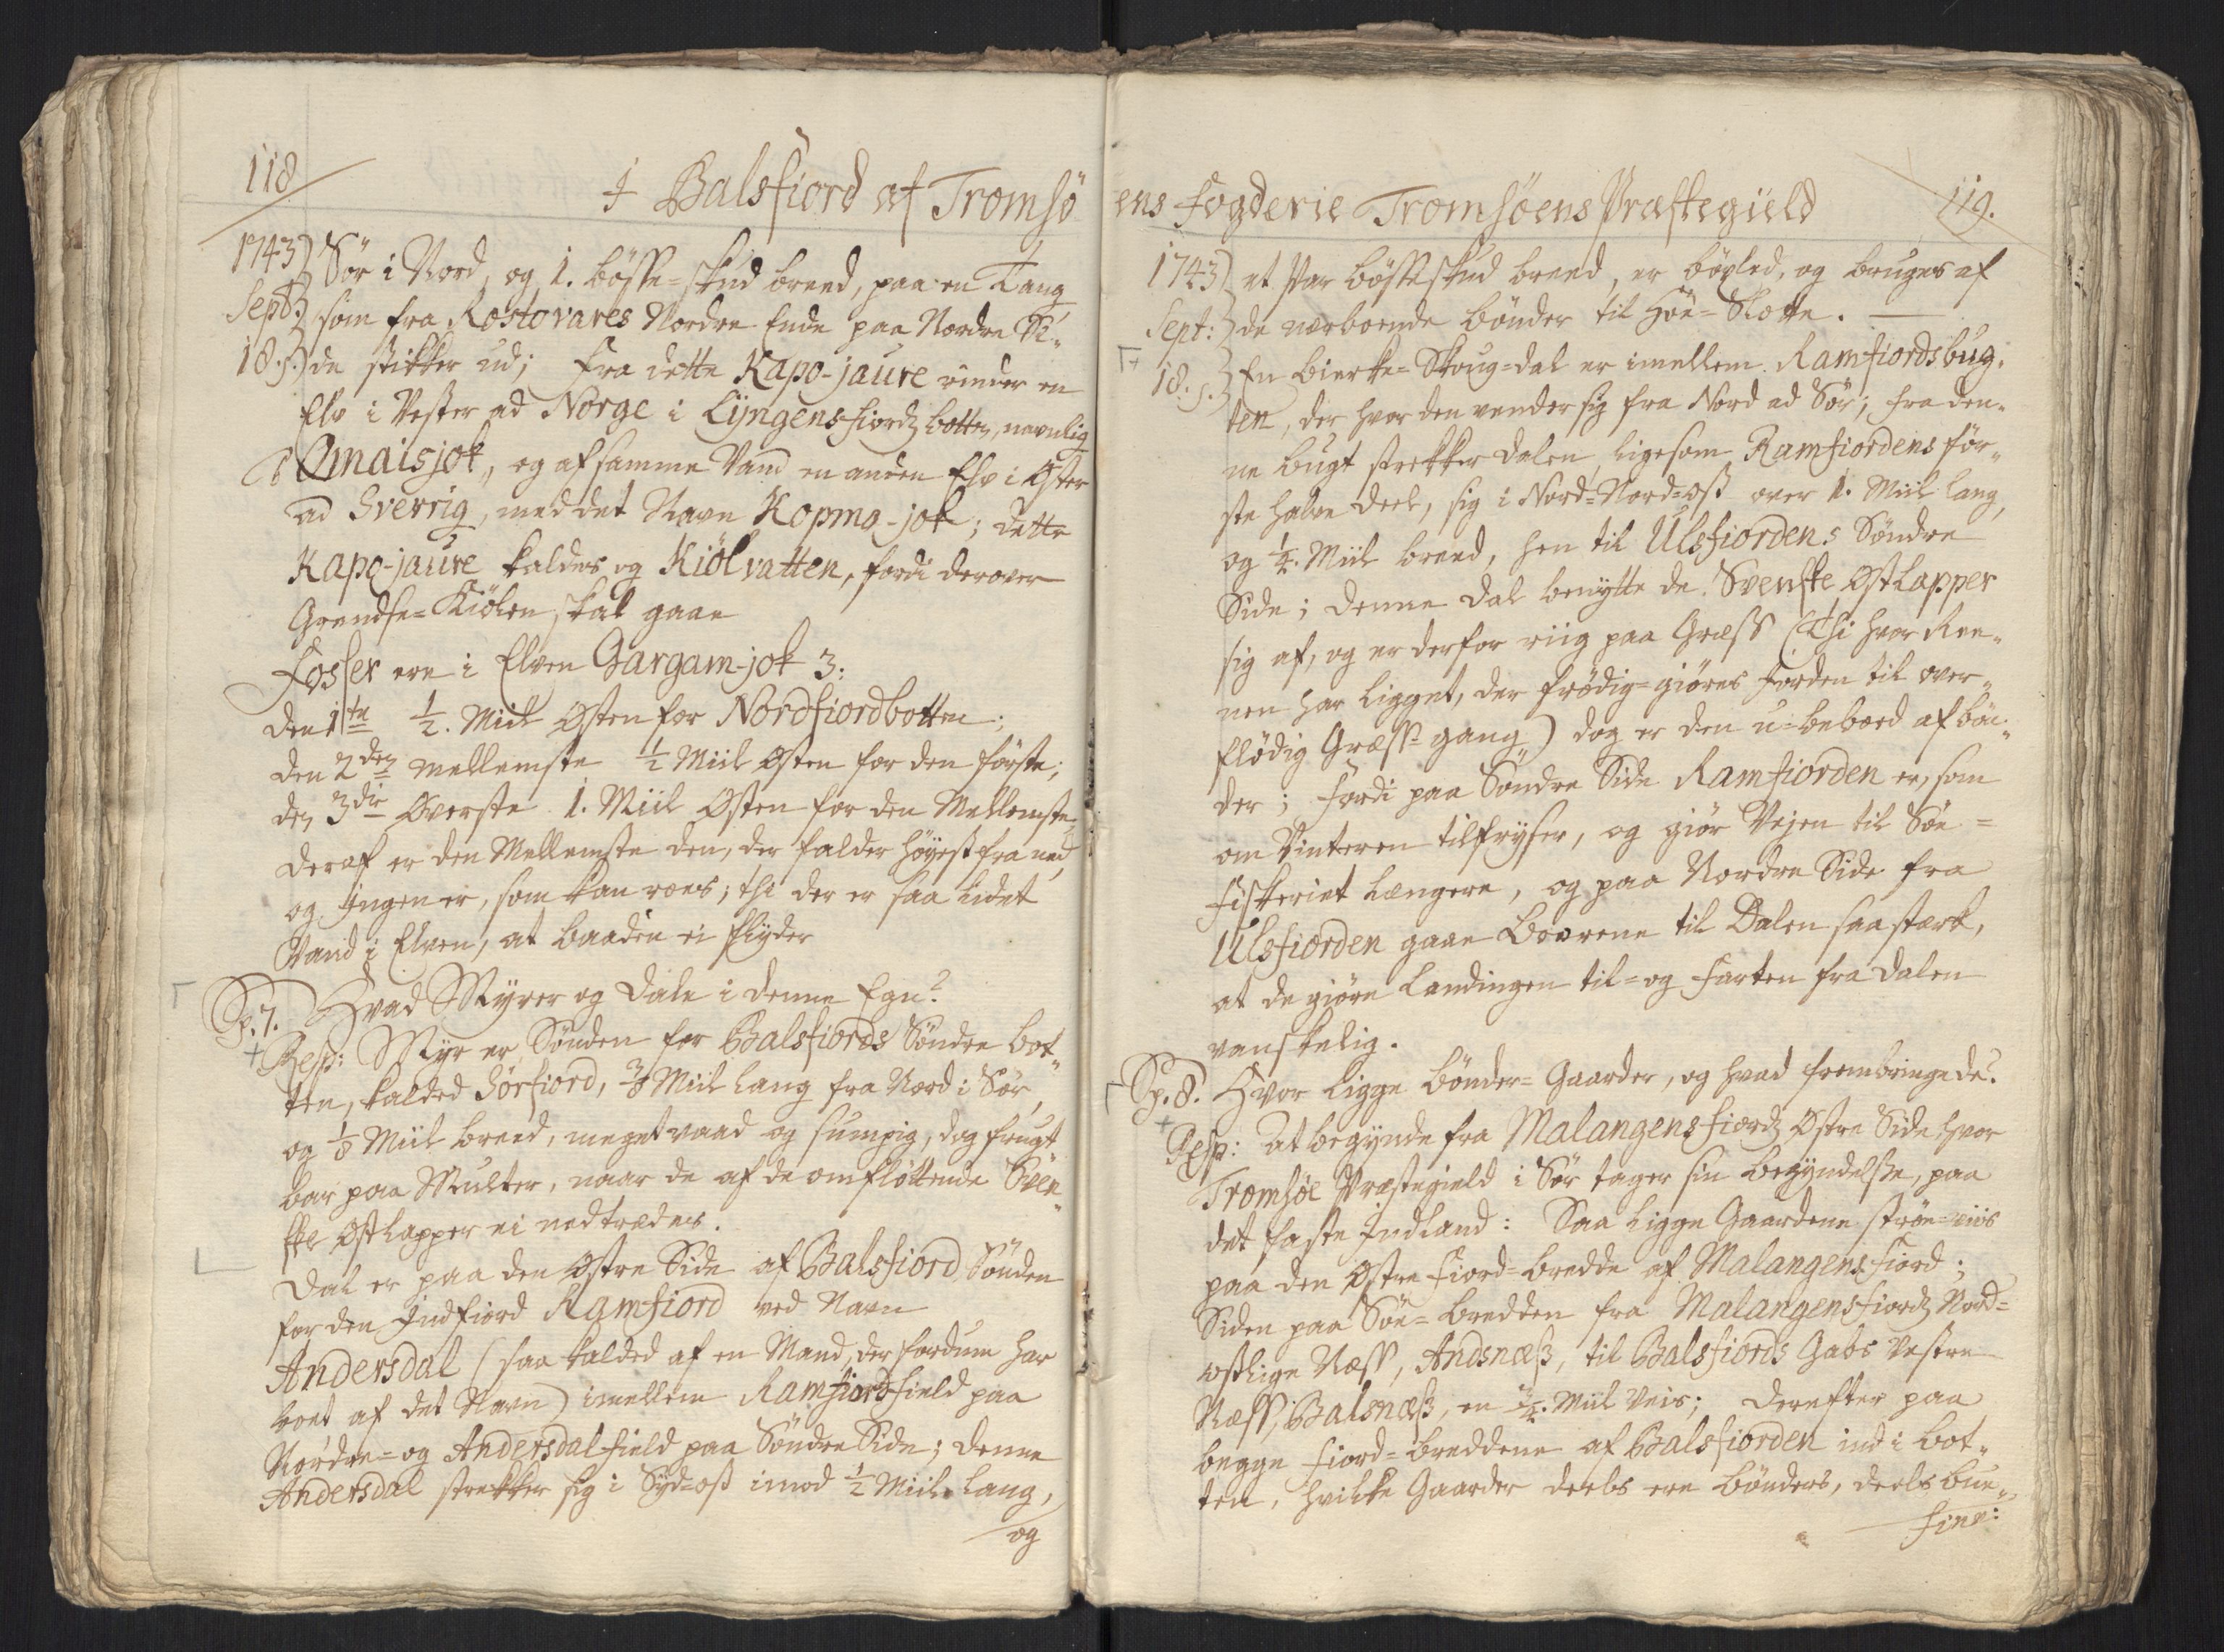 118
I Balsfiord af Tromsö
1743 Sör i Nord, og 1. bösse-skud breed, paa en Tang
Sept: som fra Rostovares Nordre Ende paa Nordre Si„
18. s. de stikker ud; Fra dette Kapo-jaure rinder en
Elv i Vester ad Norge i Lyngensfiords botten, navnlig
Omaisjok, og af samme Vand en anden Elv i Øster
ad Sverrig, med det Navn Kopma-jok; dette
Kapo-jaure kaldes og Kiölvatten, fordi derover
Grendse-Kiölen skal gaae
Fosser ere i Elven Gargam-jok 3:
den 1ste 1/2. Miil Østen for Nordfiordbotten;
den 2den Mellemste 1/2 Miil Østen for den förste;
den 3die Øverste 1. Miil Østen for den Mellemste
deraf er den Mellemste den, der falder höyest fra ned,
og Ingen er, som kan roes; thi der er saa lidet
Vand i Elven, at baaden ei flyder
Sp. 7. Hvad Myrer og Dale i denne Egn?
Resp: Myr er Sönden for Balsfiords Söndre bot„
ten, kalded Sörfiord, 3/8 Miil lang fra Nord i Sör,
og 1/8 Miil breed, meget vaad og sumpig, dog frugt
bar paa Multer, naar de af de omflöttende Sven„
ske Østlapper ei nedtrædes.
Dal er paa den Østre Side af Balsfiord Sönden
for den Indfiord Ramfiord ved Navn
Andersdal (saa kalded af en Mand, der fordum har
boet af det Navn) imellem Ramfiordfield paa
Nordre- og Andersdalfield paa Söndre Side; denne
Andersdal strekker sig i Syd-ost imod 1/2 Miil lang,
og
ens Fogderie Tromsöens Præstegield
119.
1743 et Par bösseskud breed, er böxled, og bruges af
Sept: de nærboende bönder til Höe-Slotte.
18. s. En Bierke-Skoug-dal er imellem Ramfiordsbug„
ten, der hvor den vender sig fra Nord ad Sör; fra den„
ne bugt strekker dalen, ligesom Ramfiordens för„
ste halve deel, sig i Nord-Nord-ost over 1. Miil lang,
og 1/4. Miil breed, hen til Ulsfiordens Söndre
Side; denne Dal benytte de Svenske Østlapper
sig af, og er derfor riig paa Græss (Thi hvor Ree„
nen har ligget, der frödig-giöres Jorden til over„
flödig Græss-gang) dog er den u-beboed af bön„
der; Fordi paa Söndre Side Ramfiorden er, som
om Vinteren tilfryser, og giör Vejen til Söe-
fiskeriet længere, og paa Nordre Side fra
Ulsfiorden gaae Baarene til Dalen saa stærk,
at de giöre Landingen til- og Farten fra dalen
vanskelig.
Sp. 8. Hvor ligge bönder-Gaarder, og hvad frembringe de?
Resp: At begynde fra Malangensfiords Østre Side hvor
Tromsöe Præstegield i Sör tager sin begyndelse, paa
det faste Indland: Saa ligge Gaardene ströe-viis
paa den Østre Fiord-bredde af Malangensfiord;
Siden paa Söe-bredden fra Malangensfiords Nord-
ostlige Næss, Andsnæss, til Balsfiords Gabs Vestre
Næss, Balsnæss, en 3/4. Miil Veis; derefter paa
begge Fiord-breddene af Balsfiorden ind i bot„
ten, hvilke Gaarder deels ere bönders, deels bue„
Finn: